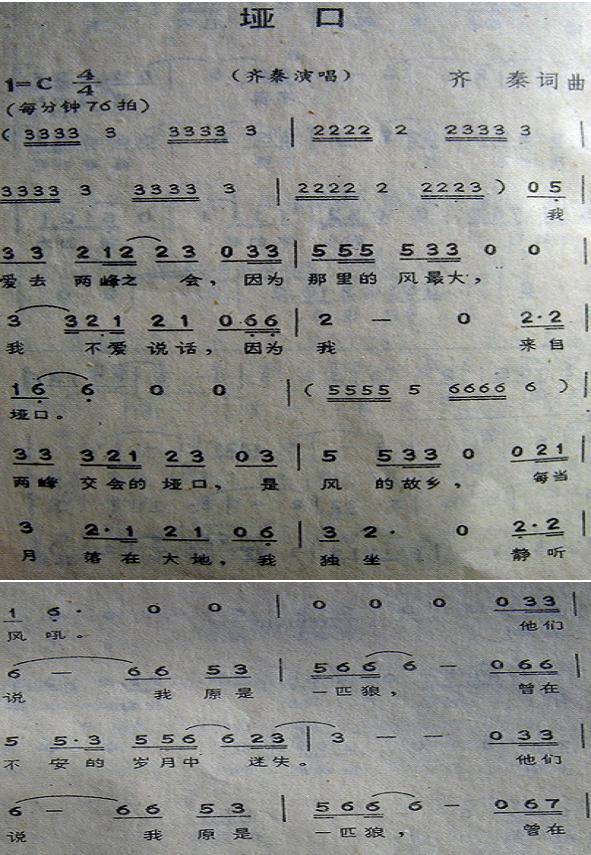 垭口
1=C 4/4 (齐秦演唱) 齐秦词曲
(每分钟76拍)
( 3333 3 3333 3 | 2222 2 2333 3 |
3333 3 3333 3 | 2222 2 2223 ) 05
我
33 212 23 033 | 555 533 0 0 |
爱去 两峰之 会, 因为 那里的 风最大,
3 321 21 0·66 | 2 — 0 2·2 |
我 不爱 说话, 因为 我 来自
16 6 0 0 | ( 5555 5 6666 6 ) |
垭口。
33 321 23 03 | 5 533 0 021 |
两峰 交会的 垭口, 是 风 的故乡, 每当
3 2·1 21 06 | 3 2· 0 2·2 |
月 落在 大地, 我 独坐 静听
1 6· 0 0 | 0 0 0 033 |
风吼。 他们
6 — 66 53 | 566 6 — 066 |
说 我 原是 一匹狼, 曾在
5 5·3 556 623 | 3 — — 033 |
不 安的 岁月中 迷失。 他们
6 — 66 53 | 566 6 — 067 |
说 我 原是 一匹狼, 曾在